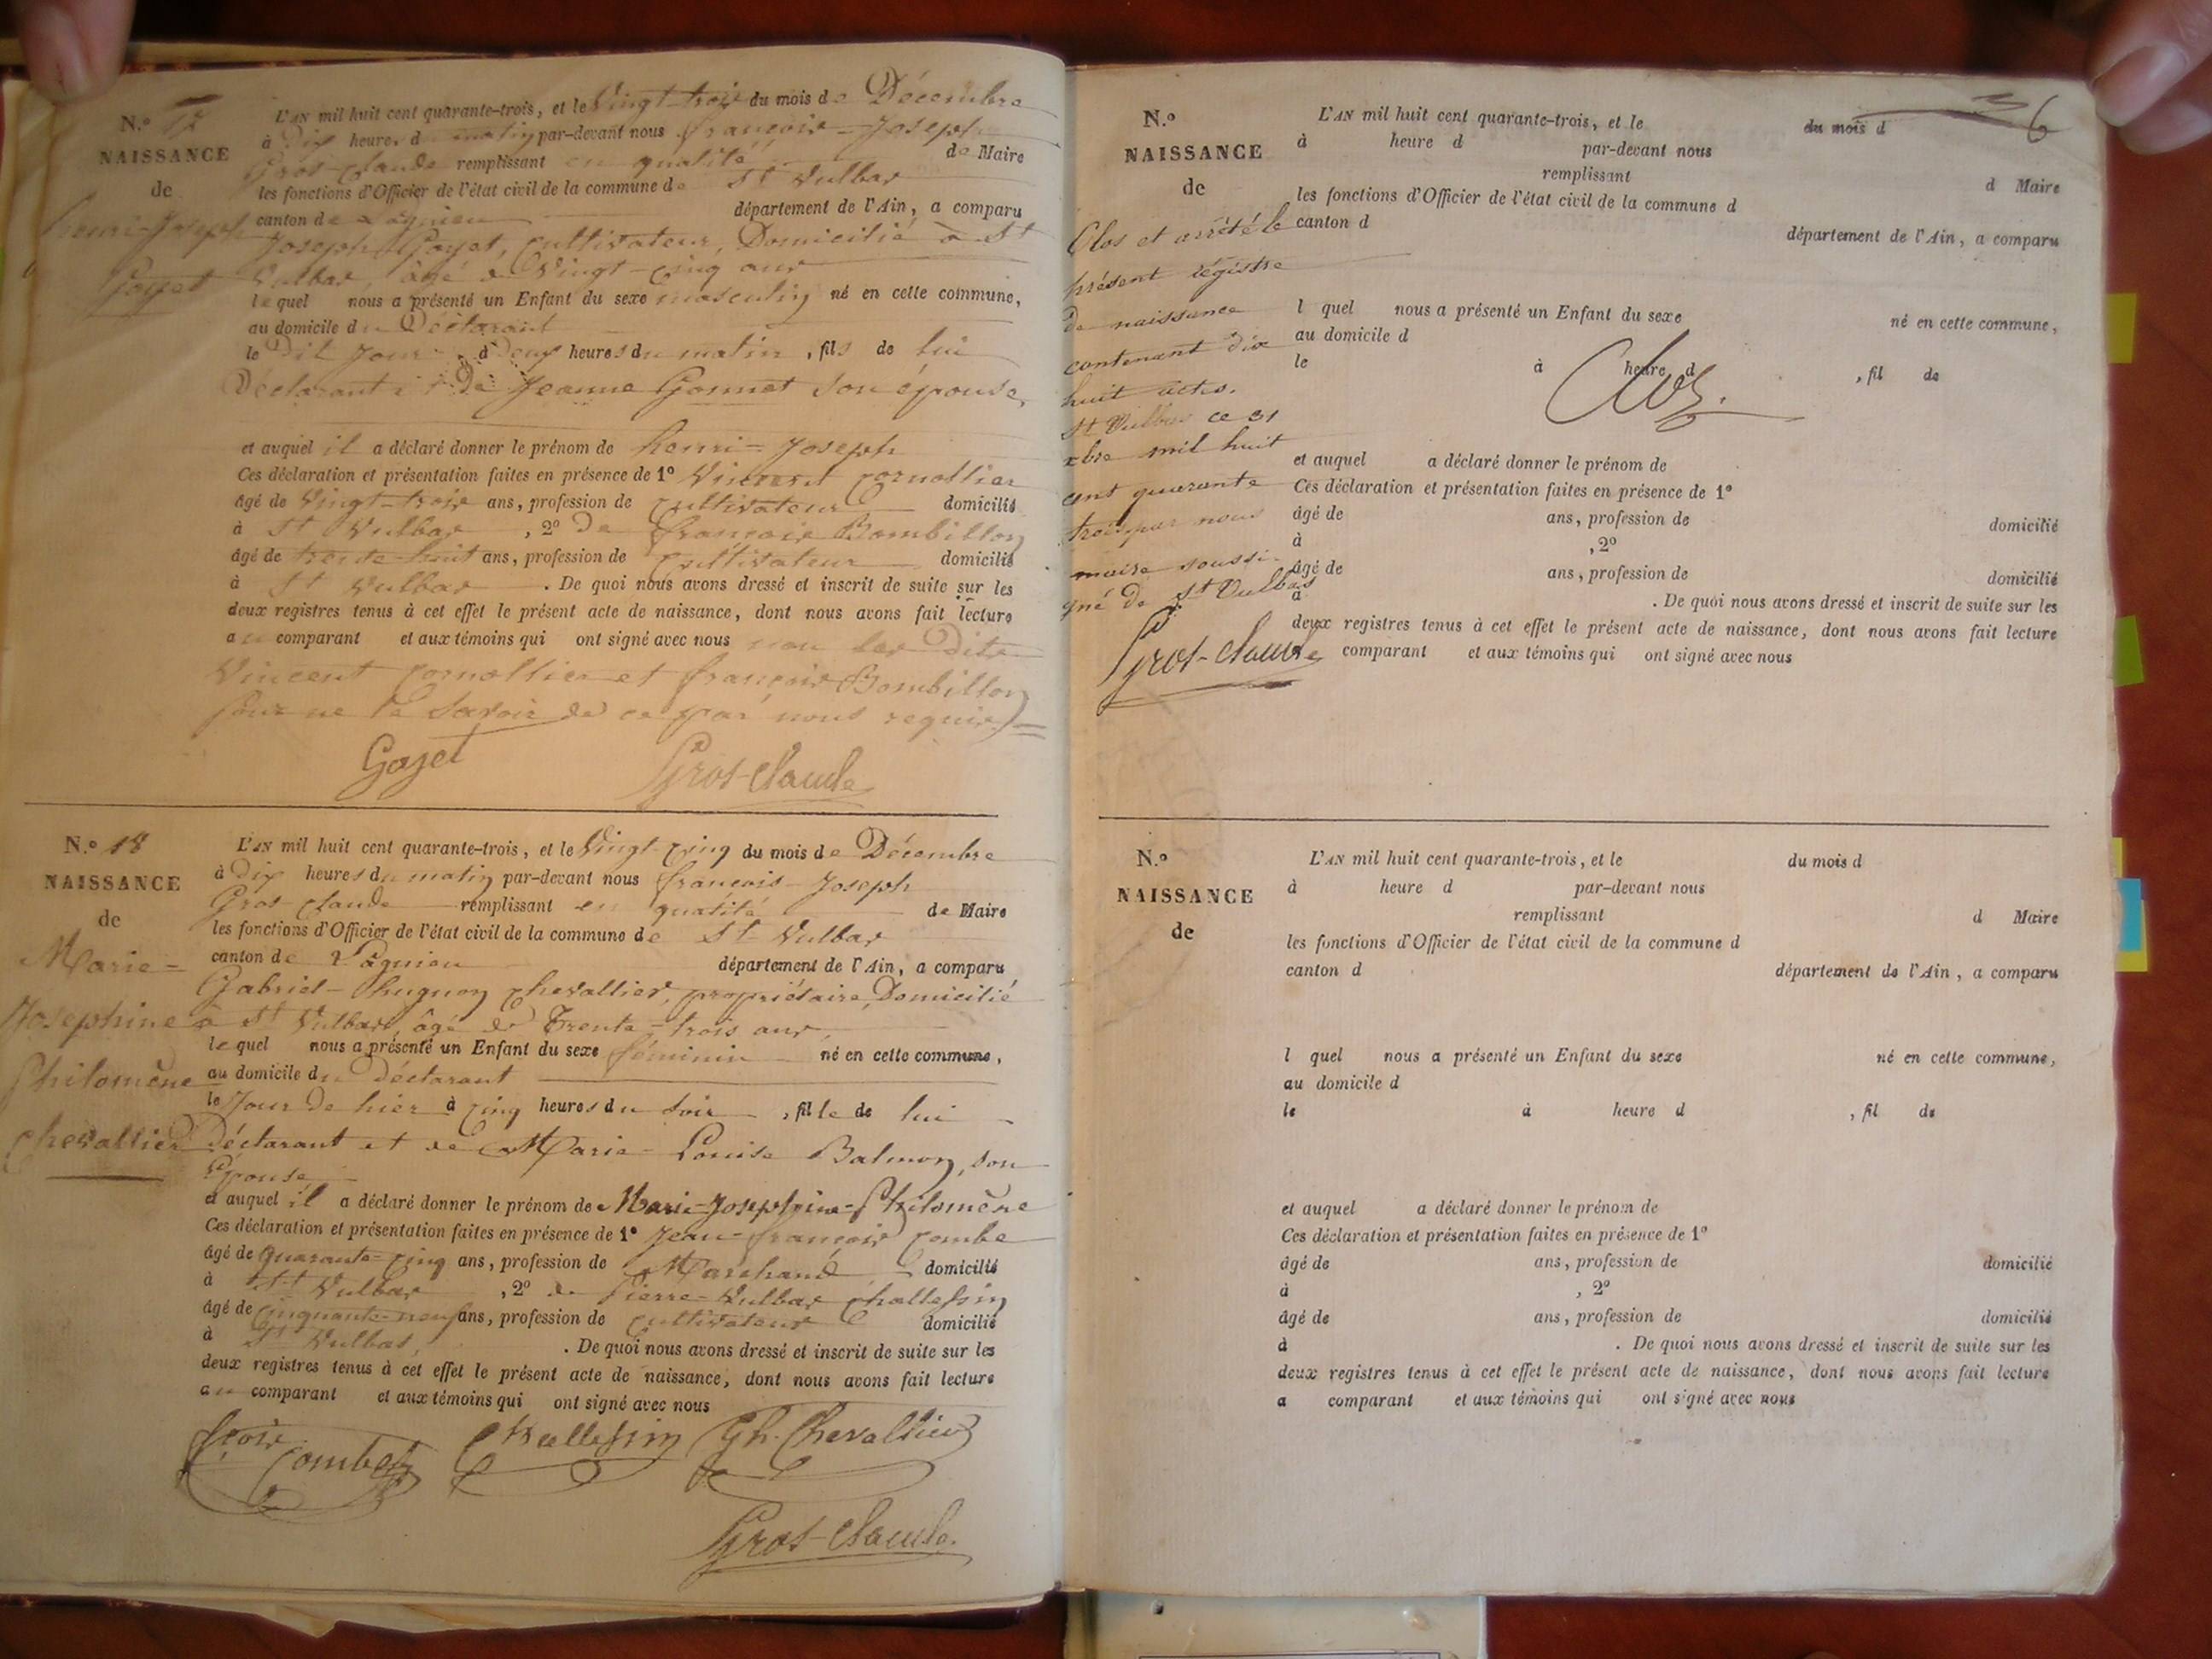 N.º 17
NAISSANCE
de
henri-Joseph
Goyet
L'AN mil huit cent quarante-trois, et le Vingt-trois du mois de Décembre
à Dix heures du matin par-devant nous françois-Joseph
Gros-claude remplissant en qualité de Maire
les fonctions d'Officier de l'état civil de la commune de St Vulbas
canton de Lagnieu département de l'Ain, a comparu
Joseph Goyet, cultivateur, Domicilié à St
Vulbas, âgé de Vingt-cinq ans
lequel nous a présenté un Enfant du sexe masculin né en cette commune,
au domicile du Déclarant
le Dit Jour à Deux heures du matin, fils de lui
Déclarant et De Jeanne Gonnet son épouse,
et auquel il a déclaré donner le prénom de henri-Joseph
Ces déclaration et présentation faites en présence de 1º Vincent cornollier
âgé de Vingt-trois ans, profession de cultivateur domicilié
à St Vulbas, 2º De françois Bombillon
âgé de trente-huit ans, profession de cultivateur domicilié
à St Vulbas. De quoi nous avons dressé et inscrit de suite sur les
deux registres tenus à cet effet le présent acte de naissance, dont nous avons fait lecture
au comparant et aux témoins qui ont signé avec nous non les dits
Vincent cornollier et françois Bombillon
pour ne le savoir de ce par nous requis
Goyet Gros-Claude
N.º 18
NAISSANCE
de
Marie-
Josephine
Philomène
chevallier
L'AN mil huit cent quarante-trois, et le Vingt-cinq du mois de Décembre
à Dix heures du matin par-devant nous françois-Joseph
Gros-claude remplissant en qualité de Maire
les fonctions d'Officier de l'état civil de la commune de St-Vulbas
canton de Lagnieu département de l'Ain, a comparu
Gabriel-hugnon chevallier, propriétaire, Domicilié
à St Vulbas, âgé de Trente-trois ans,
lequel nous a présenté un Enfant du sexe féminin né en cette commune,
au domicile du déclarant
le Jour De hier à cinq heures du soir, fille de lui
Déclarant et de Marie-Louise Balmon, son
Epouse
et auquel il a déclaré donner le prénom de Marie-Josephine-Philomène
Ces déclaration et présentation faites en présence de 1º Jean-françois combe
âgé de quarante-cinq ans, profession de Marchand domicilié
à St Vulbas, 2º de Pierre-Vulbas challessin
âgé de cinquante-neuf ans, profession de cultivateur domicilié
à St Vulbas, . De quoi nous avons dressé et inscrit de suite sur les
deux registres tenus à cet effet le présent acte de naissance, dont nous avons fait lecture
au comparant et aux témoins qui ont signé avec nous
fçois Combe Challessin Gh. Chevallier
Gros-Claude.
6
N.º
NAISSANCE
de
Clos et arrêté le
présent régistre
de naissance
contenant dix
huit actes.
St Vulbas ce 31
xbre mil huit
cent quarante
trois par nous
maire soussi-
gné de St Vulbas
Gros-Claude
L'AN mil huit cent quarante-trois, et le du mois d
à heure d par-devant nous
remplissant d Maire
les fonctions d'Officier de l'état civil de la commune d
canton d département de l'Ain, a comparu
l quel nous a présenté un Enfant du sexe né en cette commune,
au domicile d
le à heure d , fil de
Clos.
et auquel a déclaré donner le prénom de
Ces déclaration et présentation faites en présence de 1º
âgé de ans, profession de domicilié
à , 2º
âgé de ans, profession de domicilié
à . De quoi nous avons dressé et inscrit de suite sur les
deux registres tenus à cet effet le présent acte de naissance, dont nous avons fait lecture
comparant et aux témoins qui ont signé avec nous
N.º
NAISSANCE
de
L'AN mil huit cent quarante-trois, et le du mois d
à heure d par-devant nous
remplissant d Maire
les fonctions d'Officier de l'état civil de la commune d
canton d département de l'Ain, a comparu
l quel nous a présenté un Enfant du sexe né en cette commune,
au domicile d
le à heure d , fil de
et auquel a déclaré donner le prénom de
Ces déclaration et présentation faites en présence de 1º
âgé de ans, profession de domicilié
à , 2º
âgé de ans, profession de domicilié
à . De quoi nous avons dressé et inscrit de suite sur les
deux registres tenus à cet effet le présent acte de naissance, dont nous avons fait lecture
a comparant et aux témoins qui ont signé avec nous